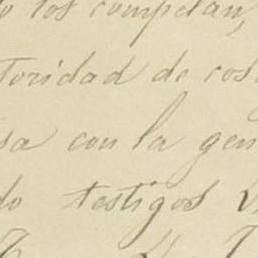 o los compelan,
toridad de cos
sa con la gen
do testigos